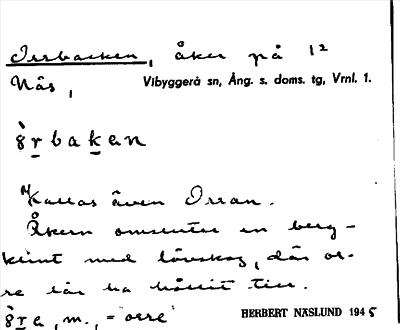 Orrbacken, åker på 1²
Näs, Vibyggerå sn, Ång. s. doms. tg, Vrnl. 1.
òrbakan
Kallas även Orran.
Åkern omsluter en berg-
klint med lövskog, där or-
re lär ha hållit till.
òrа, m., = "orre"
HERBERT NÄSLUND 1945